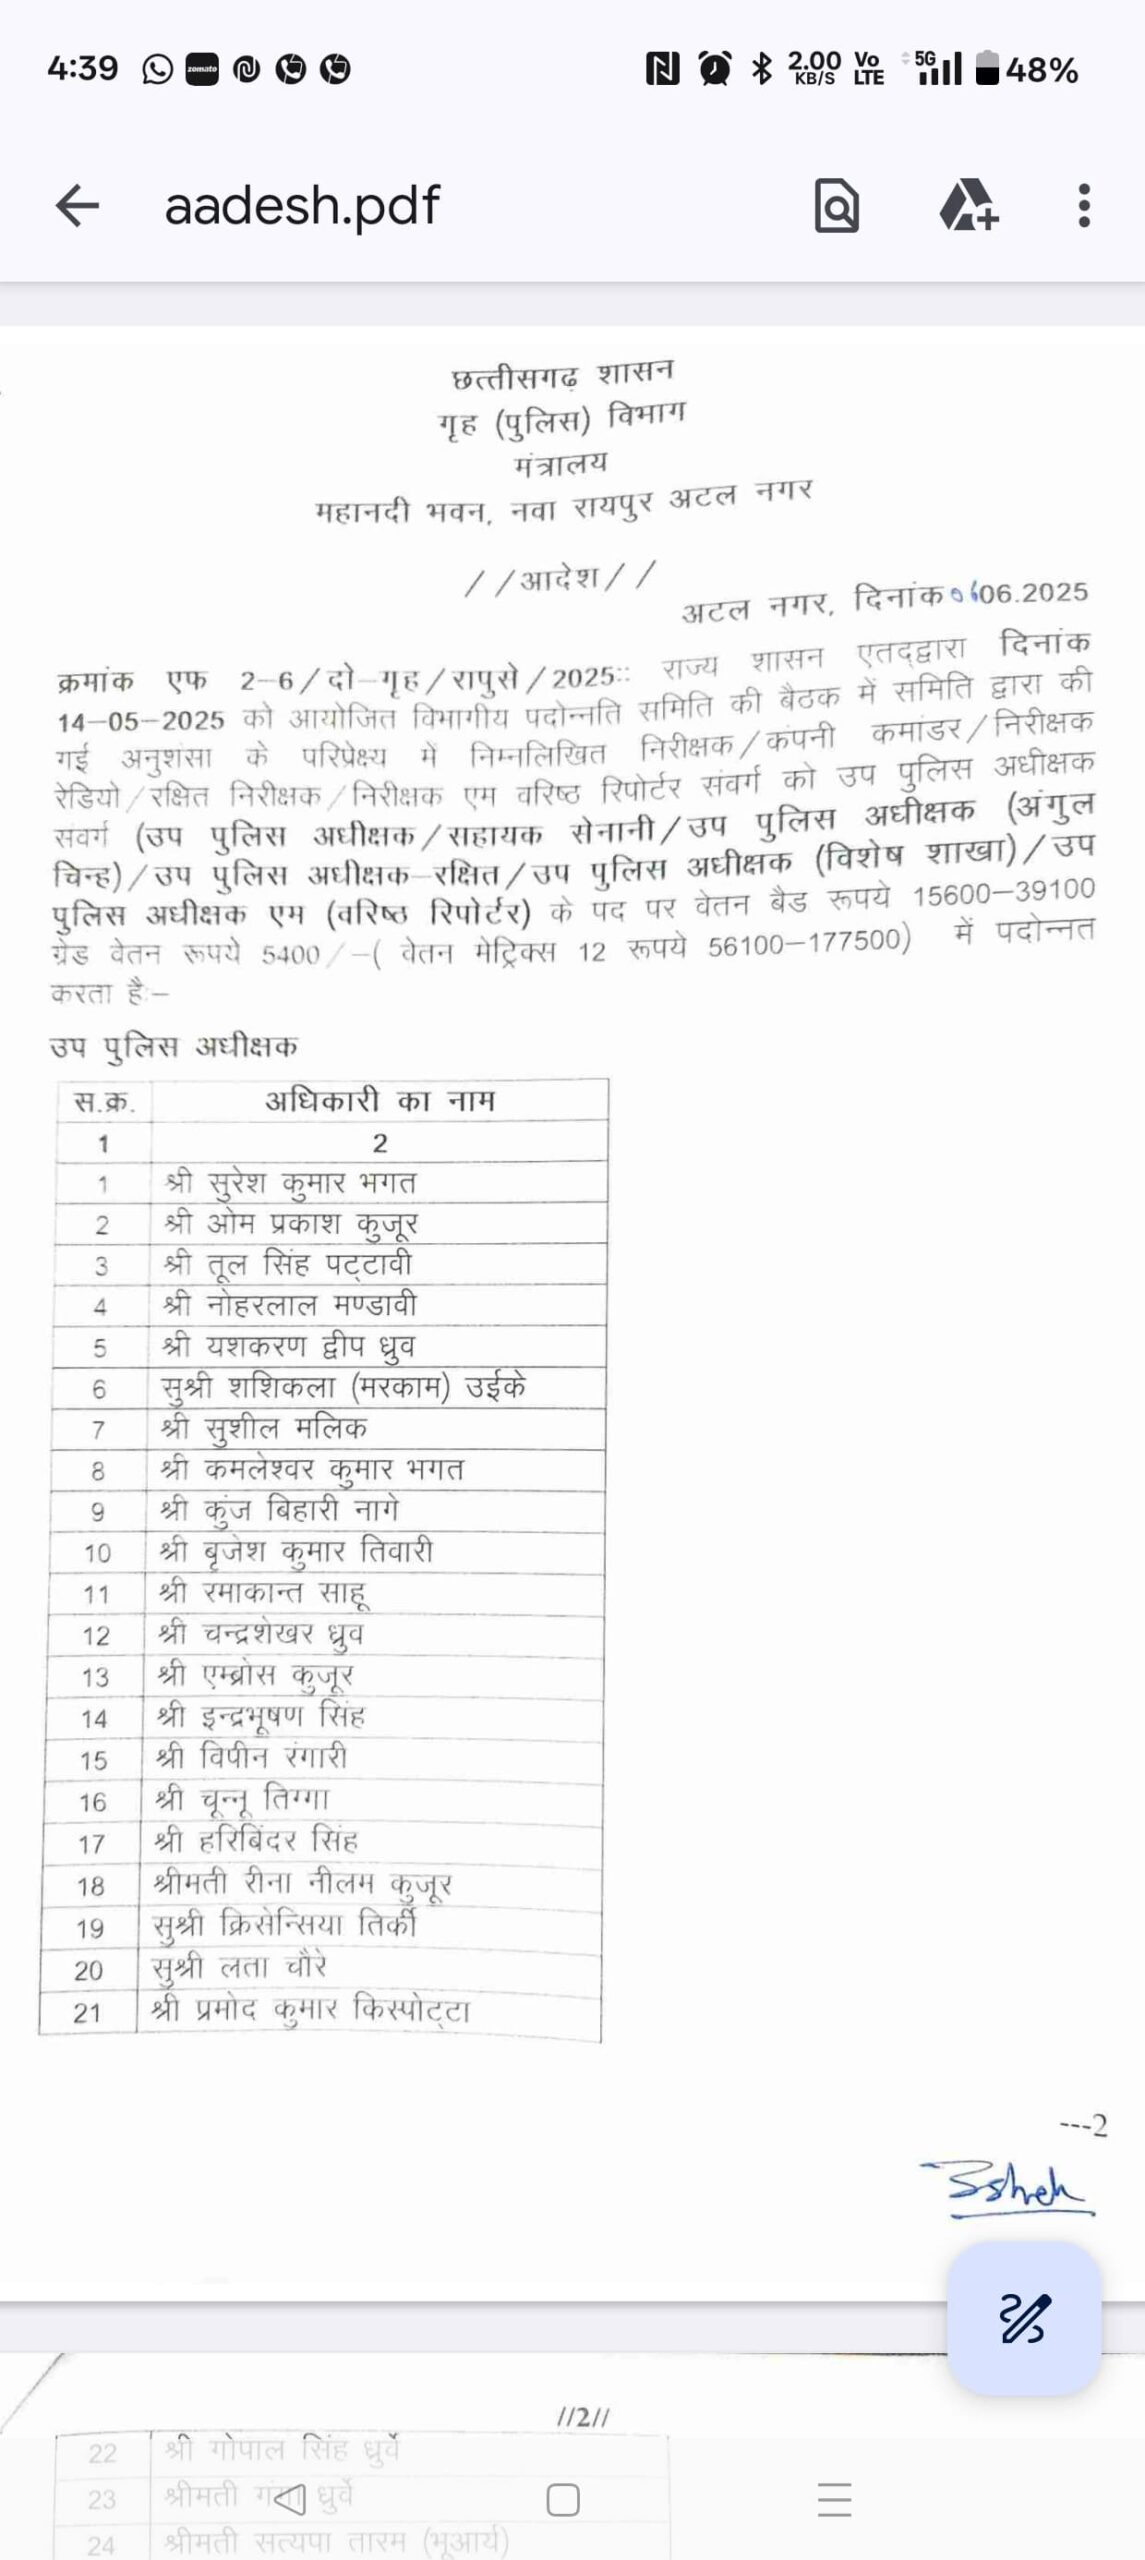 4:39 zomato 2.00 KB/S Vo LTE 5G 48%
aadesh.pdf
छत्तीसगढ़ शासन
गृह (पुलिस) विभाग
मंत्रालय
महानदी भवन, नवा रायपुर अटल नगर
//आदेश//
अटल नगर, दिनांक 06.2025
क्रमांक एफ 2-6/दो-गृह/रापुसे/2025:: राज्य शासन एतद्द्वारा दिनांक
14-05-2025 को आयोजित विभागीय पदोन्नति समिति की बैठक में समिति द्वारा की
गई अनुशंसा के परिप्रेक्ष्य में निम्नलिखित निरीक्षक/कंपनी कमांडर/निरीक्षक
रेडियो/रक्षित निरीक्षक/निरीक्षक एम वरिष्ठ रिपोर्टर संवर्ग को उप पुलिस अधीक्षक
संवर्ग (उप पुलिस अधीक्षक/सहायक सेनानी/उप पुलिस अधीक्षक (अंगुल
चिन्ह)/उप पुलिस अधीक्षक-रक्षित/उप पुलिस अधीक्षक (विशेष शाखा)/उप
पुलिस अधीक्षक एम (वरिष्ठ रिपोर्टर) के पद पर वेतन बैड रूपये 15600-39100
ग्रेड वेतन रूपये 5400/-( वेतन मेट्रिक्स 12 रूपये 56100-177500) में पदोन्नत
करता है:-
उप पुलिस अधीक्षक
स.क्र. अधिकारी का नाम
1 2
1 श्री सुरेश कुमार भगत
2 श्री ओम प्रकाश कुजूर
3 श्री तूल सिंह पट्टावी
4 श्री नोहरलाल मण्डावी
5 श्री यशकरण द्वीप ध्रुव
6 सुश्री शशिकला (मरकाम) उईके
7 श्री सुशील मलिक
8 श्री कमलेश्वर कुमार भगत
9 श्री कुंज बिहारी नागे
10 श्री बृजेश कुमार तिवारी
11 श्री रमाकान्त साहू
12 श्री चन्द्रशेखर ध्रुव
13 श्री एम्ब्रोस कुजूर
14 श्री इन्द्रभूषण सिंह
15 श्री विपीन रंगारी
16 श्री चून्नू तिग्गा
17 श्री हरिबिंदर सिंह
18 श्रीमती रीना नीलम कुजूर
19 सुश्री क्रिसेन्सिया तिर्की
20 सुश्री लता चौरे
21 श्री प्रमोद कुमार किस्पोट्टा
---2
//2//
22 श्री गोपाल सिंह धुर्वे
23 श्रीमती धुर्वे
24 श्रीमती सत्यपा तारम (भूआर्य)